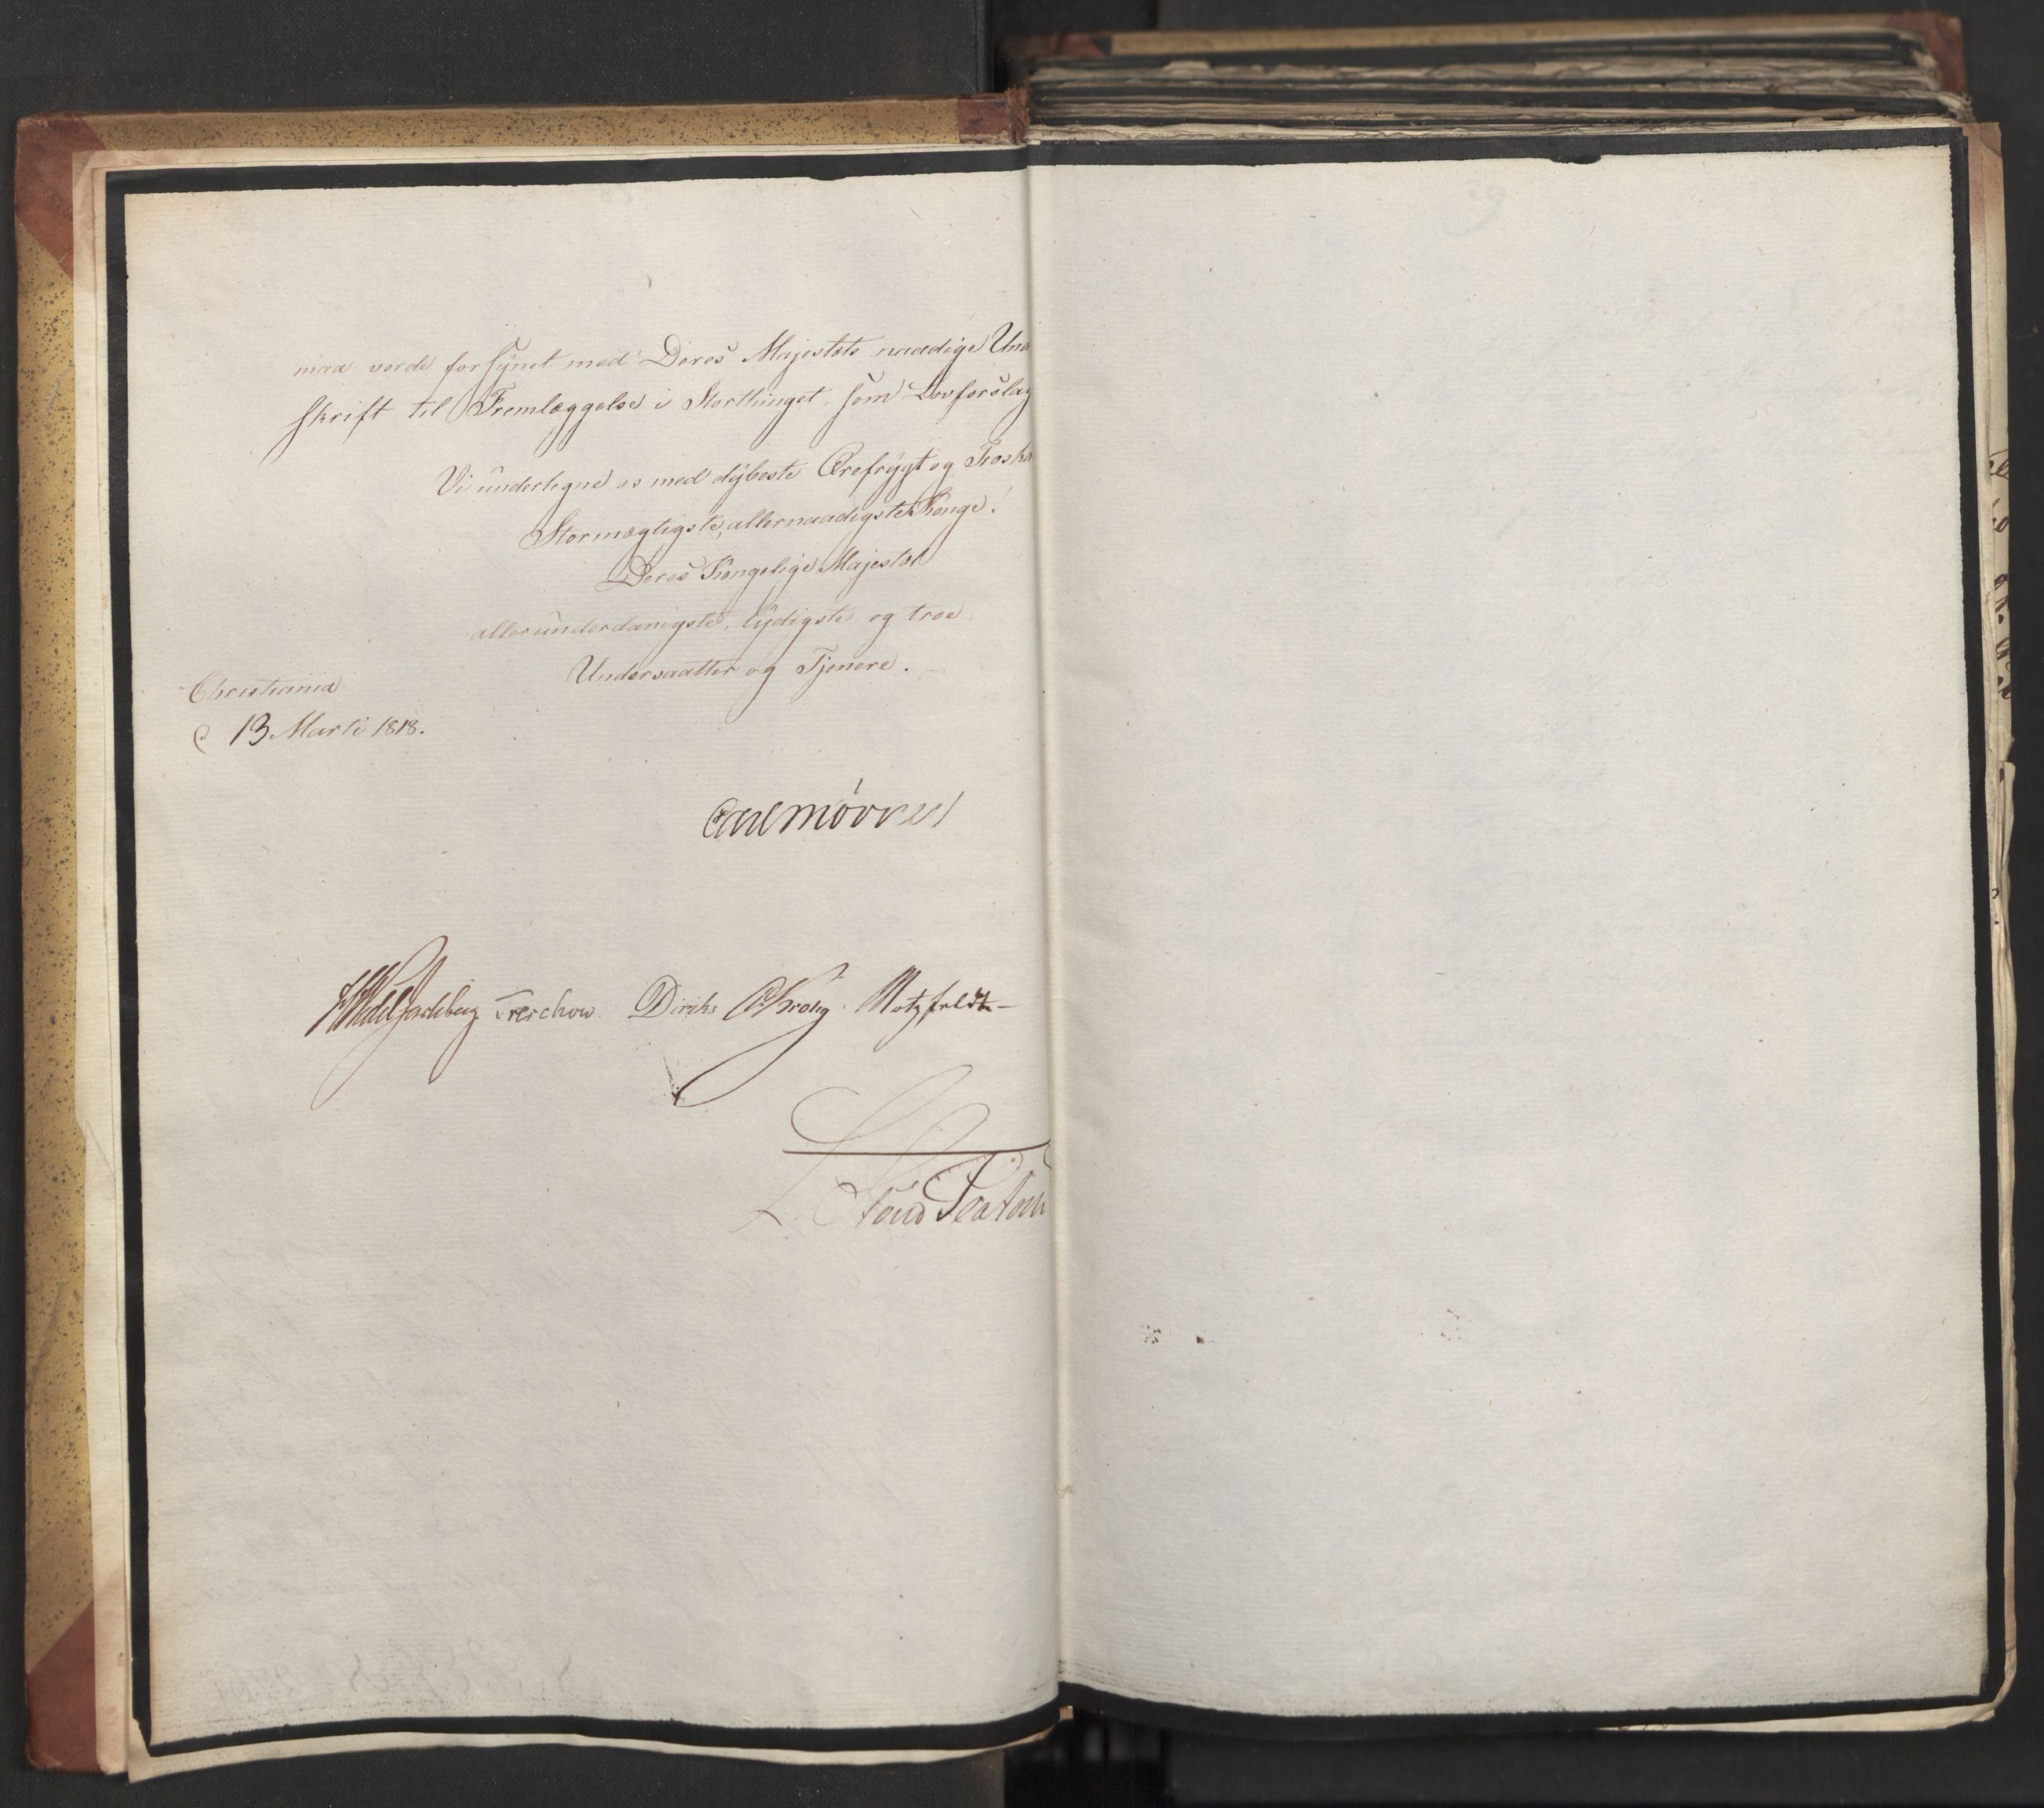 maa vorde forsÿnet med Deres Majestæts naadige Und
skrift til Fremlæggelse i Storthinget som Lovforslag
Vi underlegne os med dÿbeste Ærefrÿgt og Troska
Stormægtigste, allernaadigste Konge!
Deres Kongelige Majestæt
allerunderdanigste, lÿdigste og troe
Undersaatter og Tjenere.
Christiania
d 13 Marti 1818.
Carl Mörner
Wedel Jarlsberg Treschow Diriks C Krohg. Motzfeldt
L. Stoud Platou